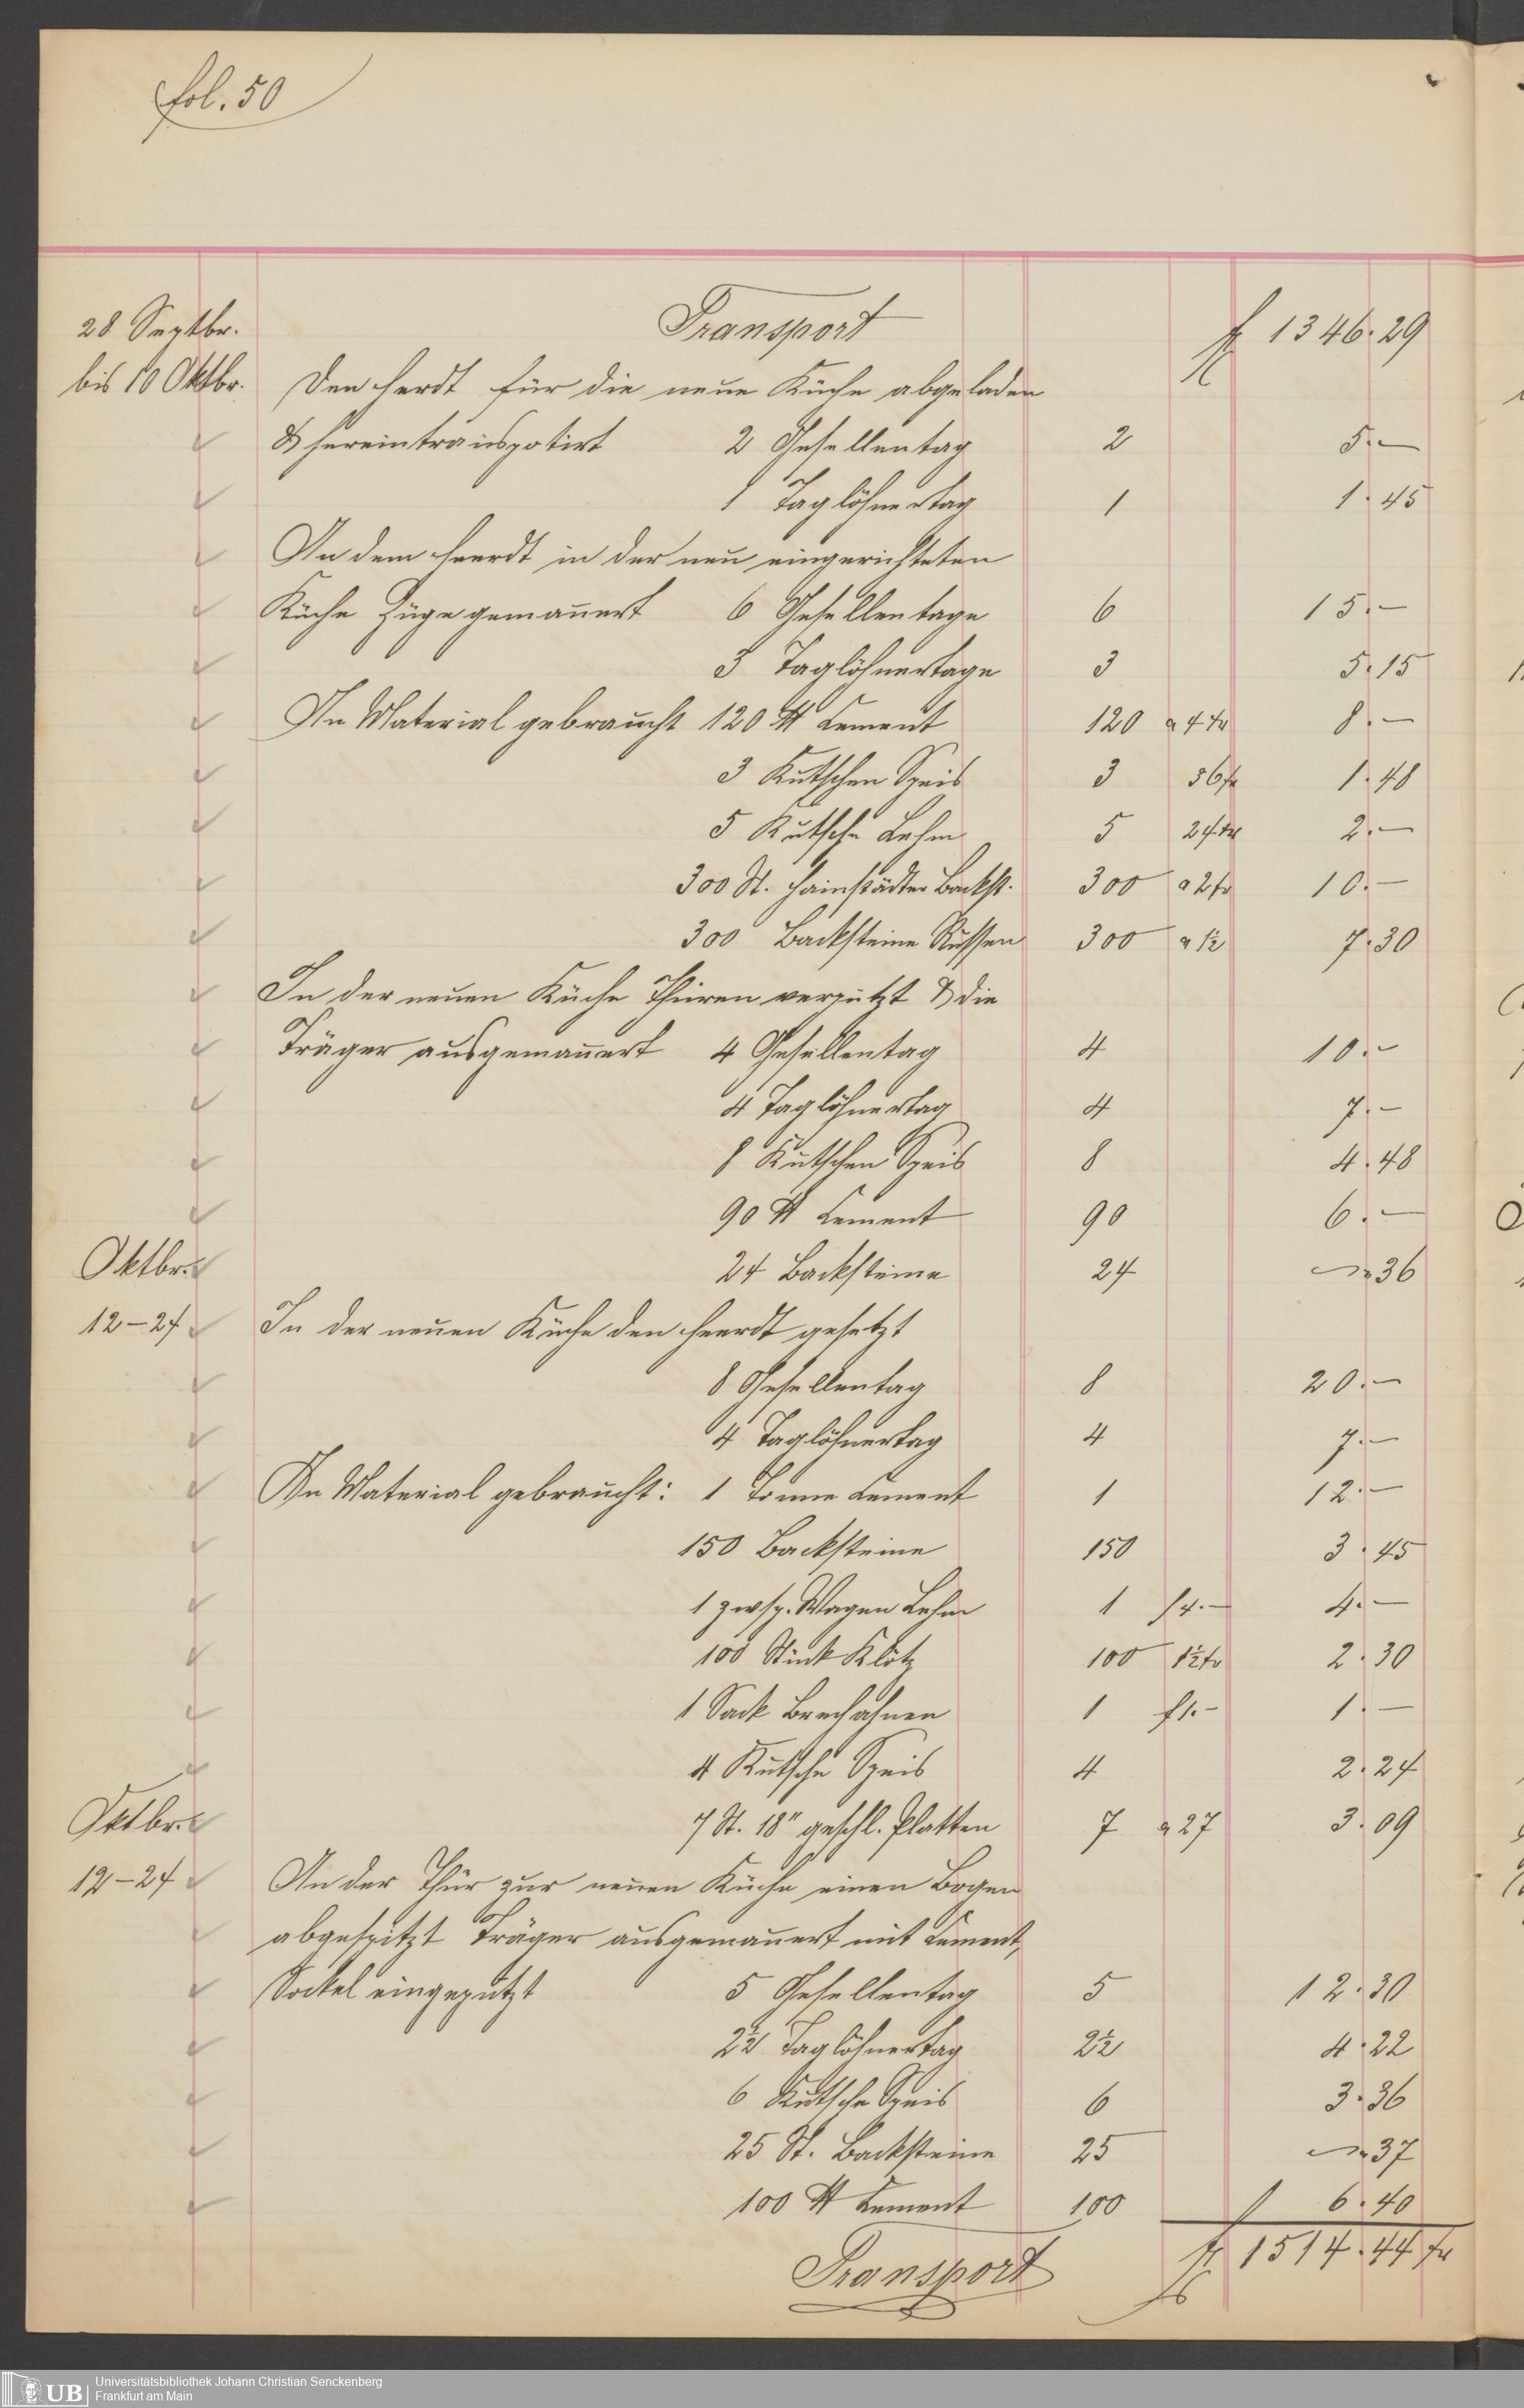 fol. 50
Transport f 1346.29
28 Septbr.
bis 10 Oktbr. Den Herdt für die neue Küche abgeladen
& hereintranspotirt 2 Gesellentag 2 5.—
1 Taglöhnertag 1 1.45
An dem Heerdt in der neu eingerichteten
Küche Züge gemauert 6 Gesellentage 6 15.—
3 Taglöhnertage 3 5.15
An Material gebraucht 120 ℔ Cement 120 a 4 kr 8.—
3 Kutschen Speis 3 36 kr 1.48
5 Kutsche Lehm 5 24 kr 2.—
300 St. Hainstädter Backst. 300 a 2 kr 10.—
300 Backsteine Russen 300 a 1½ 7.30
In der neuen Küche Thüren verputzt & die
Träger ausgemauert 4 Gesellentag 4 10.—
4 Taglöhnertag 4 7.—
8 Kutschen Speis 8 4.48
90 ℔ Cement 90 6.—
Oktbr. 24 Backsteine 24 —.36
12–24 In der neuen Küche den Heerdt gesetzt
8 Gesellentag 8 20.—
4 Taglöhnertag 4 7.—
An Material gebraucht: 1 Tonne Cement 1 12.—
150 Backsteine 150 3.45
1 zwsp. Wagen Lehm 1 f 4.— 4.—
100 Stück Klötz 100 1½ kr 2.30
1 Sack 1 f 1.— 1.—
4 Kutsche Speis 4 2.24
Oktbr. 7 St. 18" geschl. Platten 7 a 27 3.09
12–24 An der Thür zur neuen Küche einen Bogen
abgespitzt Träger ausgemauert mit Cement,
Sockel eingeputzt 5 Gesellentag 5 12.30
2½ Taglöhnertag 2½ 4.22
6 Kutsche Speis 6 3.36
25 St. Backsteine 25 —.37
100 ℔ Cement 100 6.40
Transport f 1514.44 kr
UB Universitätsbibliothek Johann Christian Senckenberg
Frankfurt am Main